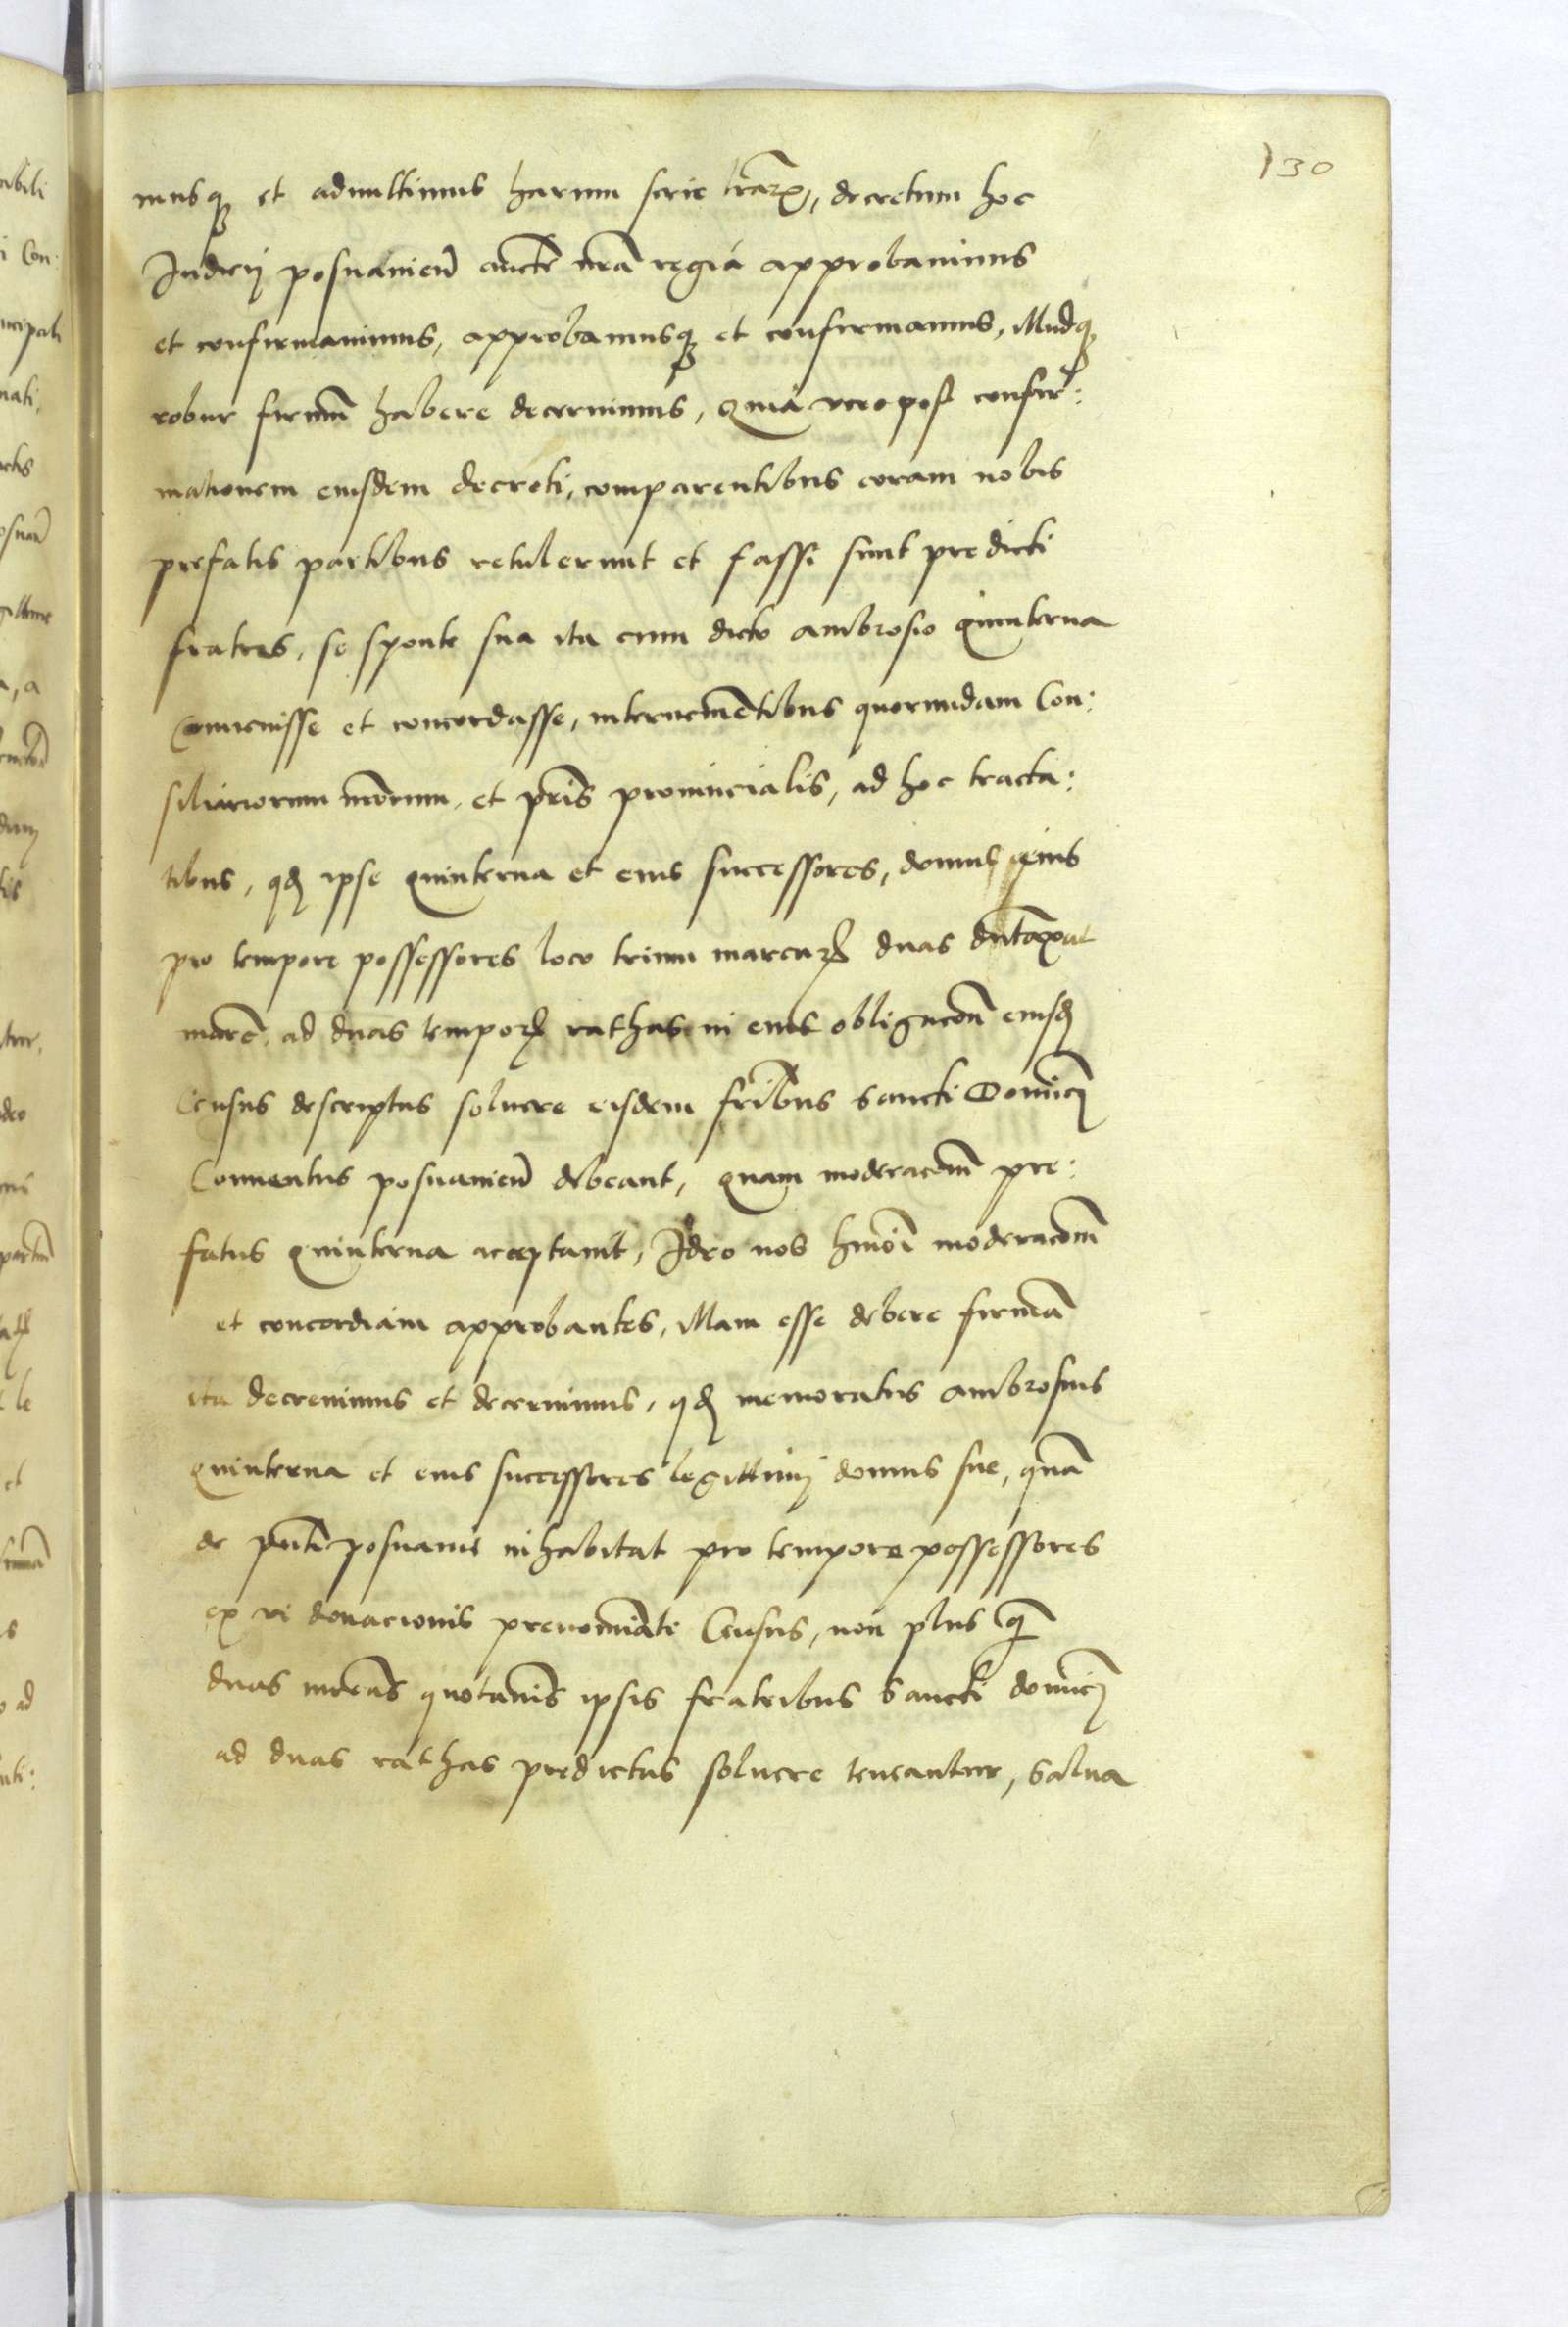 130
musq₃ et admittimus harum serie l̄raꝝ, decretum hoc
Iudicij posnanien̄ auct̄e n̄ra regia approbauimus
et confirmauimus, approbamusq₃ et confirmamus, Illudq₃
robur firmū habere decernimus, Quia vero post confir:
mationem eiusdem decreti, comparentibus coram nobis
prefatis partibus retulerunt et fassi sunt predicti
fratres, se sponte sua ita cum dicto ambrosio quinterna
Conuenisse et concordasse, interueniētibus quorundam Con:
siliariorum nr̄orum, et p̄ris prouincialis, ad hoc tracta:
tibus, qđ ipse quinterna et eius successores, domus eius
pro tempore possessores loco trium marcaꝝ duas dūtaxat
marc̄. ad duas tempoꝝ rathas in eius obligacōn̄ eiusđ
Census descriptas soluere eisdem fr̄ibus Sancti Dominicj
Conuentus posnanien̄ debeant, quam moderacōm̄ pre:
fatus quinterna acceptauit, Ideo nos hmōi moderacōm̄
et concordiam approbantes, Illam esse debere firmā
ita decreuimus et decernimus, qđ memoratus ambrosius
quinterna et eius successores legittimj domus sue, quā
de p̄nti posnanie inhabitat pro tempore possessores
ex vi donacionis prenomīati Census, non plus q̄
duas mr̄cas quotannis ipsis fratribus Sancti dominicj
ad duas rathas predictas soluere teneantur, Salua